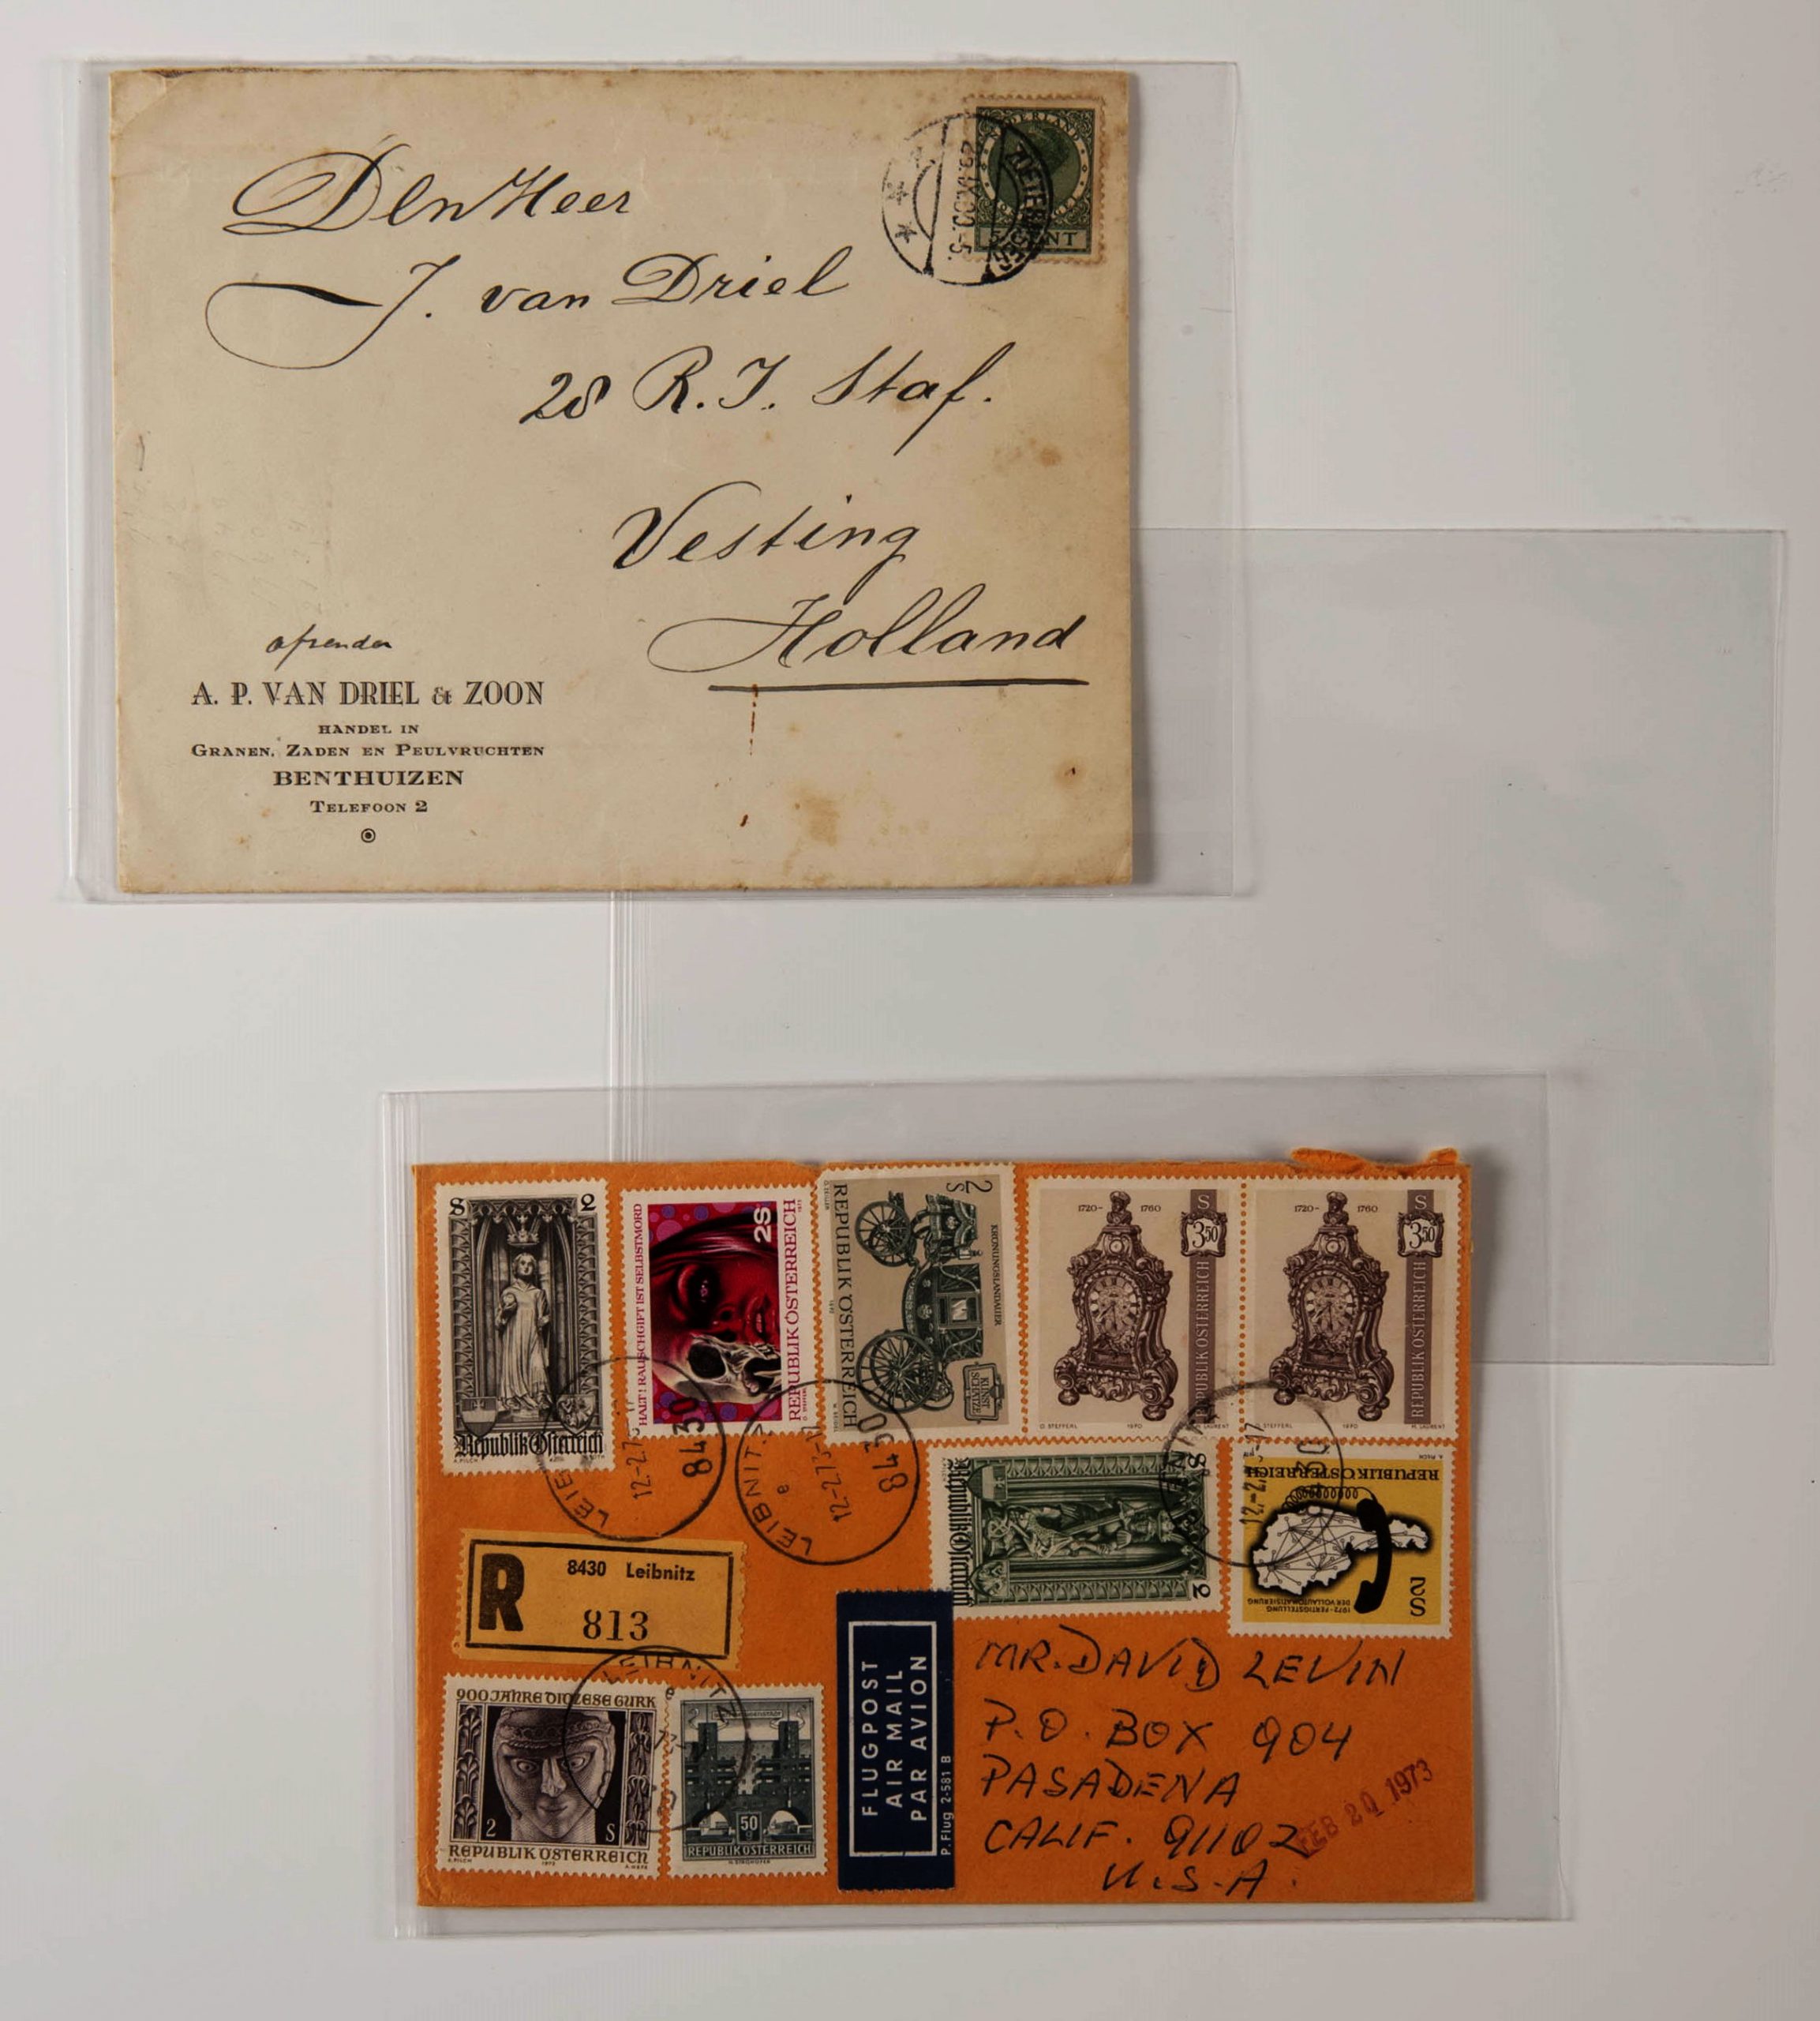 Den Heer
J. van Driel
28 R.I. Staf.
Vesting
Holland
afzender
A. P. VAN DRIEL & ZOON
HANDEL IN
GRANEN, ZADEN EN PEULVRUCHTEN
BENTHUIZEN
TELEFOON 2
NEDERLAND
5 CENT
S 2
Republik Österreich
HALT! RAUSCHGIFT IST SELBSTMORD
2S
REPUBLIK ÖSTERREICH
2S
KRÖNUNGSLANDAUER
KUNST
SCHÄTZE
REPUBLIK ÖSTERREICH
1720- 1760
S
3 50
REPUBLIK ÖSTERREICH
1970
1720- 1760
S
3 50
REPUBLIK ÖSTERREICH
1970
LEIBNITZ
12-2.73-17
8430
LEIBNITZ
e
12-2.73-17
8430
S 2
Republik Österreich
REPUBLIK ÖSTERREICH
1972-FERTIGSTELLUNG
DER VOLLAUTOMATISIERUNG
2S
R
8430 Leibnitz
813
LEIBNITZ
e
900 JAHRE DIÖZESE GURK
2 S
REPUBLIK ÖSTERREICH
50
g
REPUBLIK ÖSTERREICH
FLUGPOST
AIR MAIL
PAR AVION
P. Flug 2-581 B
MR. DAVID LEVIN
P.O. BOX 904
PASADENA
CALIF. 91102
U.S.A.
FEB 20 1973